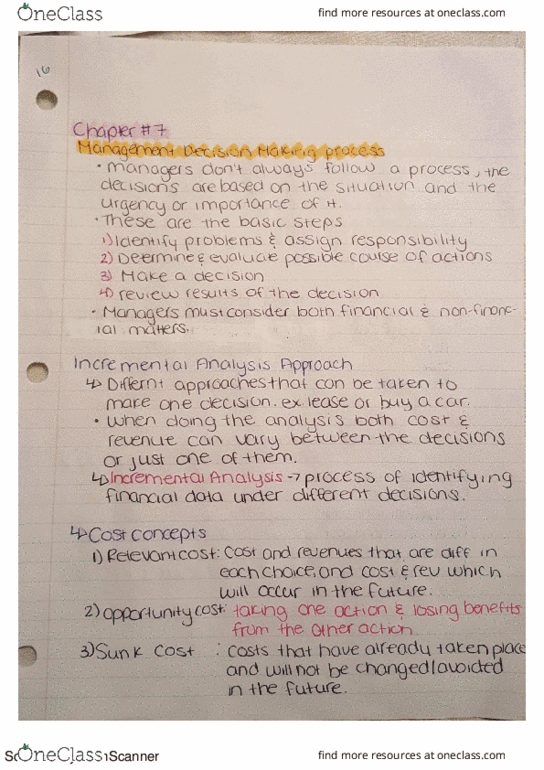 OneClass
find more resources at oneclass.com
16
Chapter #7
Management Decision Making process
• managers don't always follow a process, the
decisions are based on the situation and the
urgency or importance of it.
• These are the basic steps
1) Identify problems & assign responsibility
2) Determine & evaluate possible course of actions
3) Make a decision
4) review results of the decision
• Managers must consider both financial & non-financ-
ial matters.
Incremental Analysis Approach
↳ Differnt approaches that can be taken to
make one decision. ex lease or buy a car.
• When doing the analysis both cost &
revenue can vary between the decisions
or just one of them.
↳ Incremental Analysis → process of identifying
financial data under different decisions.
↳ Cost concepts
1) Relevant cost: cost and revenues that are diff in
each choice, and cost & rev which
will occur in the future.
2) opportunity cost: taking one action & losing benefits
from the other action
3) Sunk cost : costs that have already taken place
and will not be changed/avoided
in the future.
OneClass Scanner
find more resources at oneclass.com